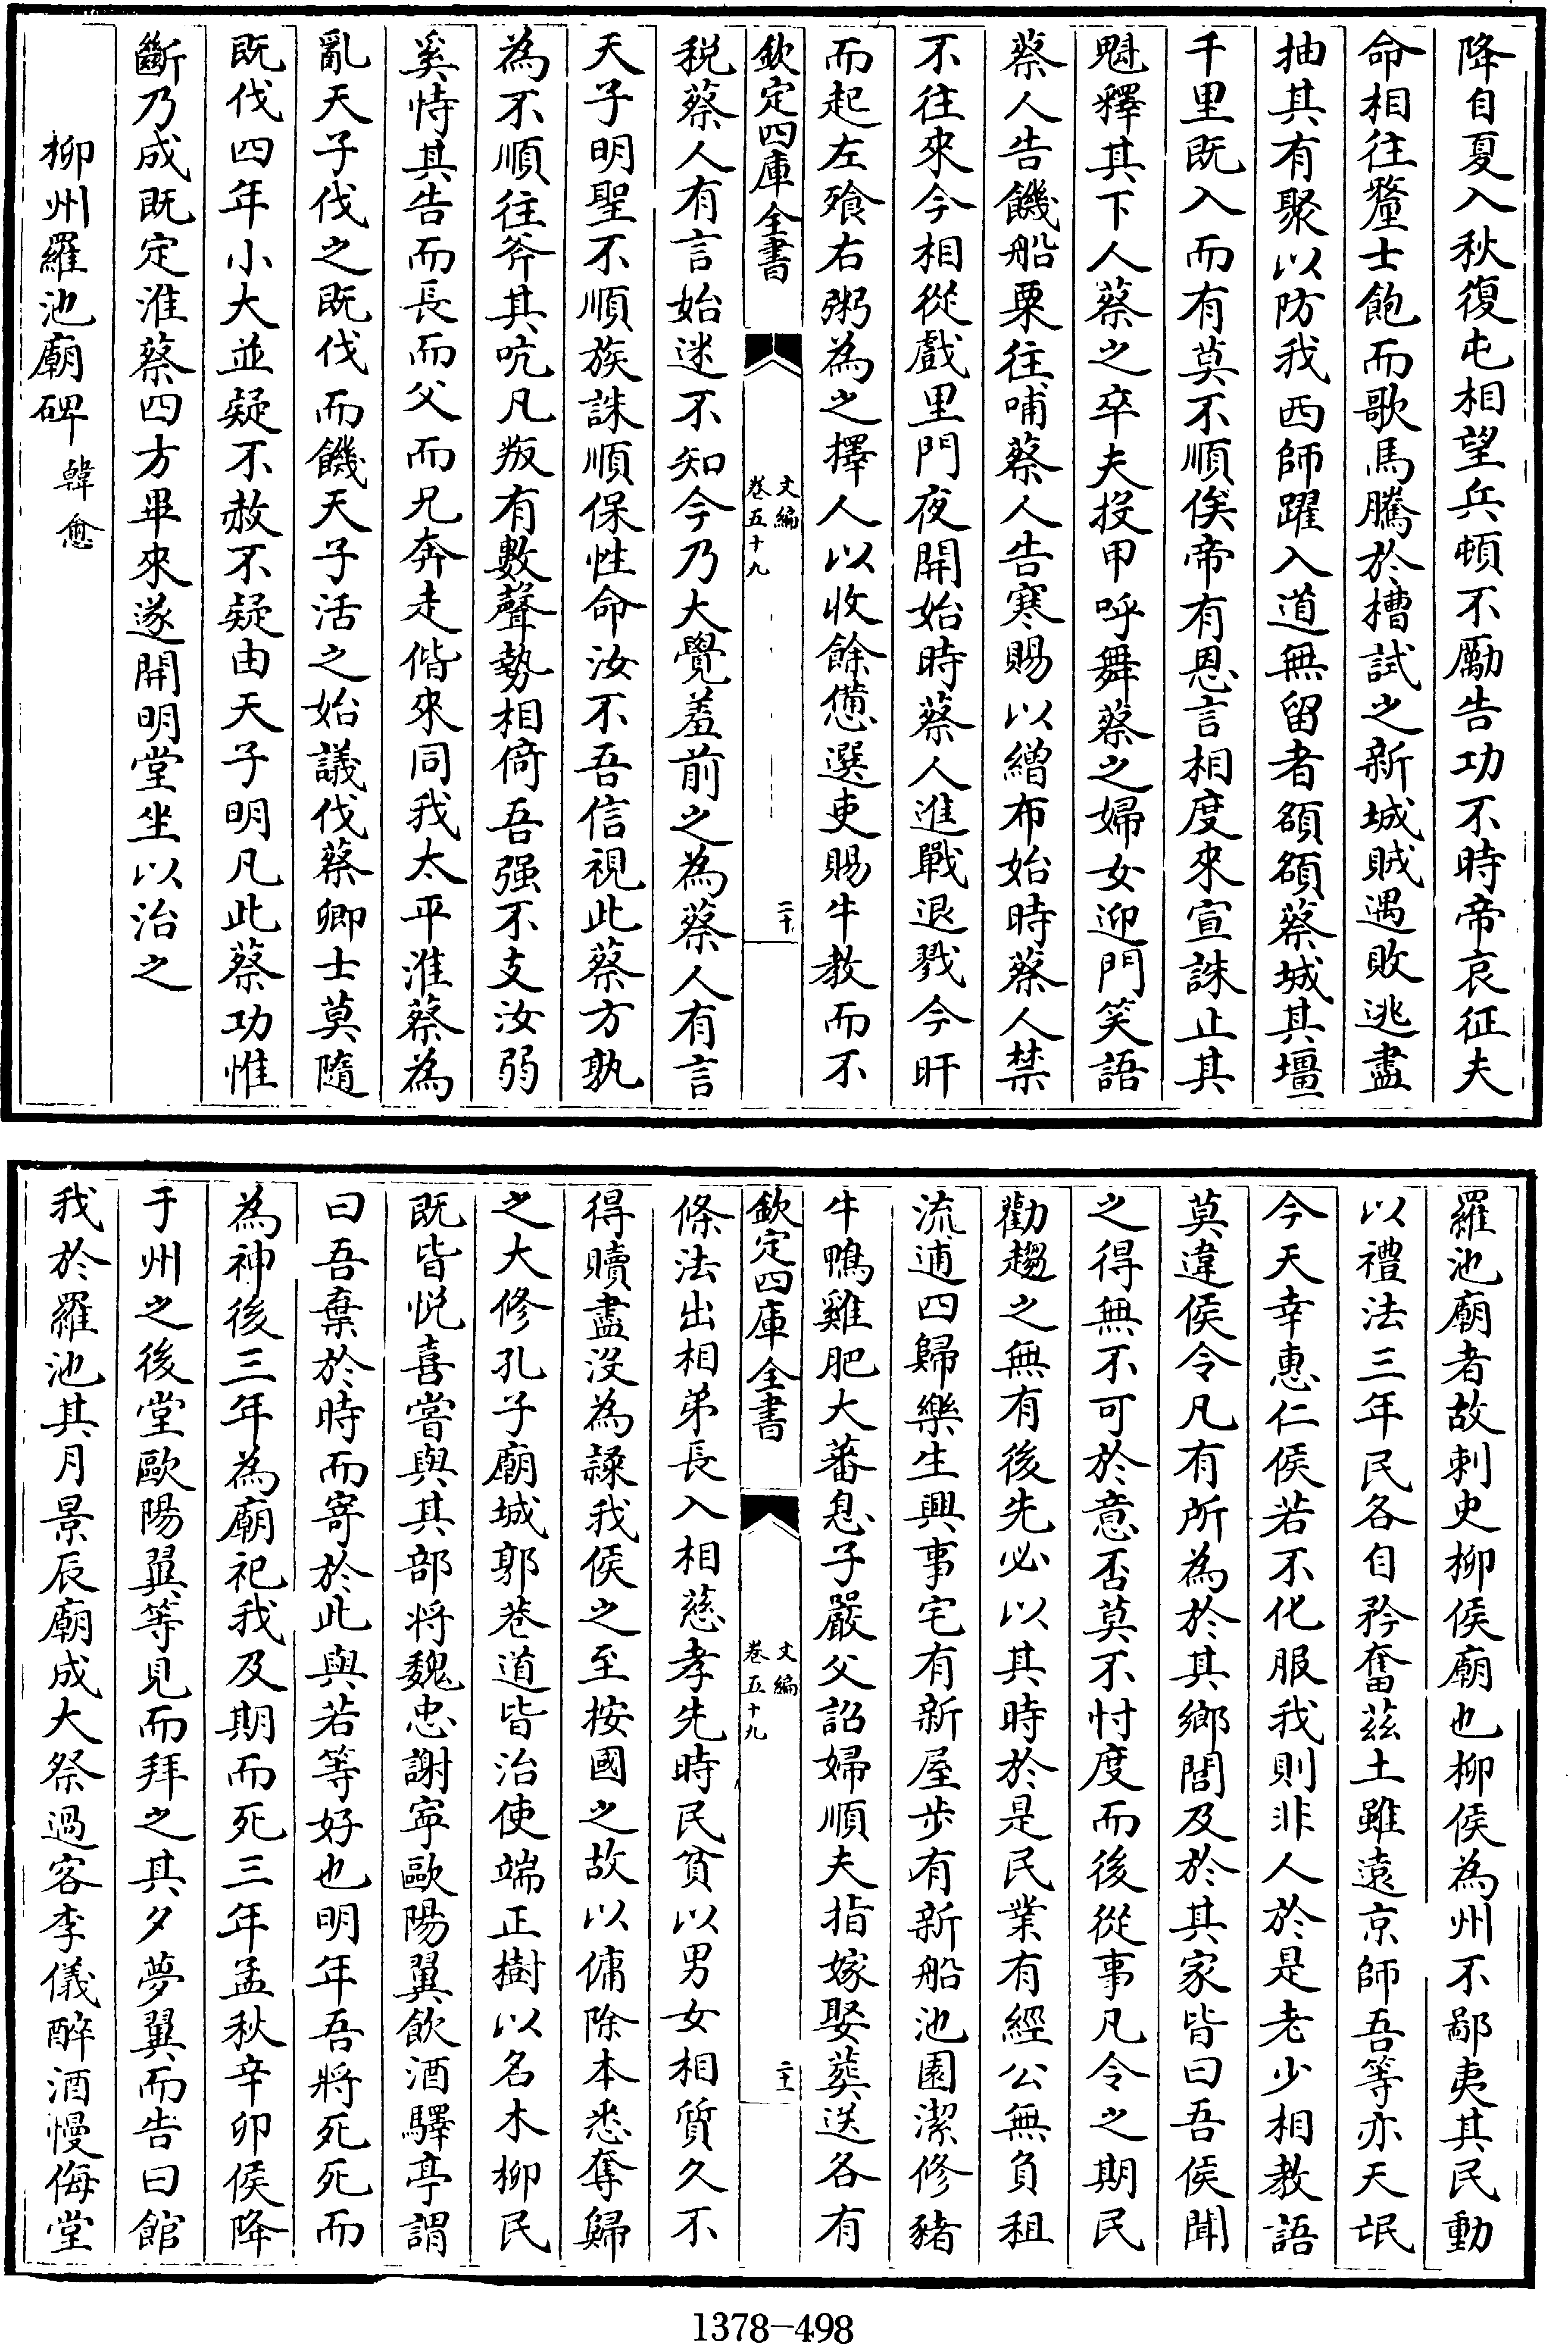 降自夏入秋復屯相望兵頓不勵告功不時帝哀征夫
命相往釐士飽而歌馬騰於槽試之新城賊遇敗逃盡
抽其有聚以防我西師躍入道無留者頟頟蔡城其壃
千里既入而有莫不順俟帝有恩言相度來宣誅止其
魁釋其下人蔡之卒夫投甲呼舞蔡之婦女迎門笑語
蔡人告饑船粟往哺蔡人告寒賜以繒布始時蔡人禁
不往來今相從戲里門夜開始時蔡人進戰退戮今旰
而起左飱右粥為之擇人以收餘憊選吏賜牛教而不
欽定四庫全書
文編
卷五十九
二十
税蔡人有言始迷不知今乃大覺羞前之為蔡人有言
天子明聖不順族誅順保性命汝不吾信視此蔡方孰
為不順往斧其吭凡叛有數聲勢相倚吾强不支汝弱
奚恃其告而長而父而兄奔走偕來同我太平淮蔡為
亂天子伐之既伐而饑天子活之始議伐蔡卿士莫隨
既伐四年小大並疑不赦不疑由天子明凡此蔡功惟
斷乃成既定淮蔡四方畢來遂開明堂坐以治之
柳州羅池廟碑 韓愈
羅池廟者故刺史柳侯廟也柳侯為州不鄙夷其民動
以禮法三年民各自矜奮茲土雖遠京師吾等亦天氓
今天幸惠仁侯若不化服我則非人於是老少相教語
莫違侯令凡有所為於其鄉閭及於其家皆曰吾侯聞
之得無不可於意否莫不忖度而後從事凡令之期民
勸趨之無有後先必以其時於是民業有經公無負租
流逋四歸樂生興事宅有新屋步有新船池園潔修豬
牛鴨雞肥大蕃息子嚴父詔婦順夫指嫁娶葬送各有
欽定四庫全書
文編
卷五十九
二十一
條法出相弟長入相慈孝先時民貧以男女相質久不
得贖盡沒為隸我侯之至按國之故以傭除本悉奪歸
之大修孔子廟城郭巷道皆治使端正樹以名木柳民
既皆悅喜嘗與其部將魏忠謝寧歐陽翼飲酒驛亭謂
曰吾棄於時而寄於此與若等好也明年吾將死死而
為神後三年為廟祀我及期而死三年孟秋辛卯侯降
于州之後堂歐陽翼等見而拜之其夕夢翼而告曰館
我於羅池其月景辰廟成大祭過客李儀醉酒慢侮堂
1378-498